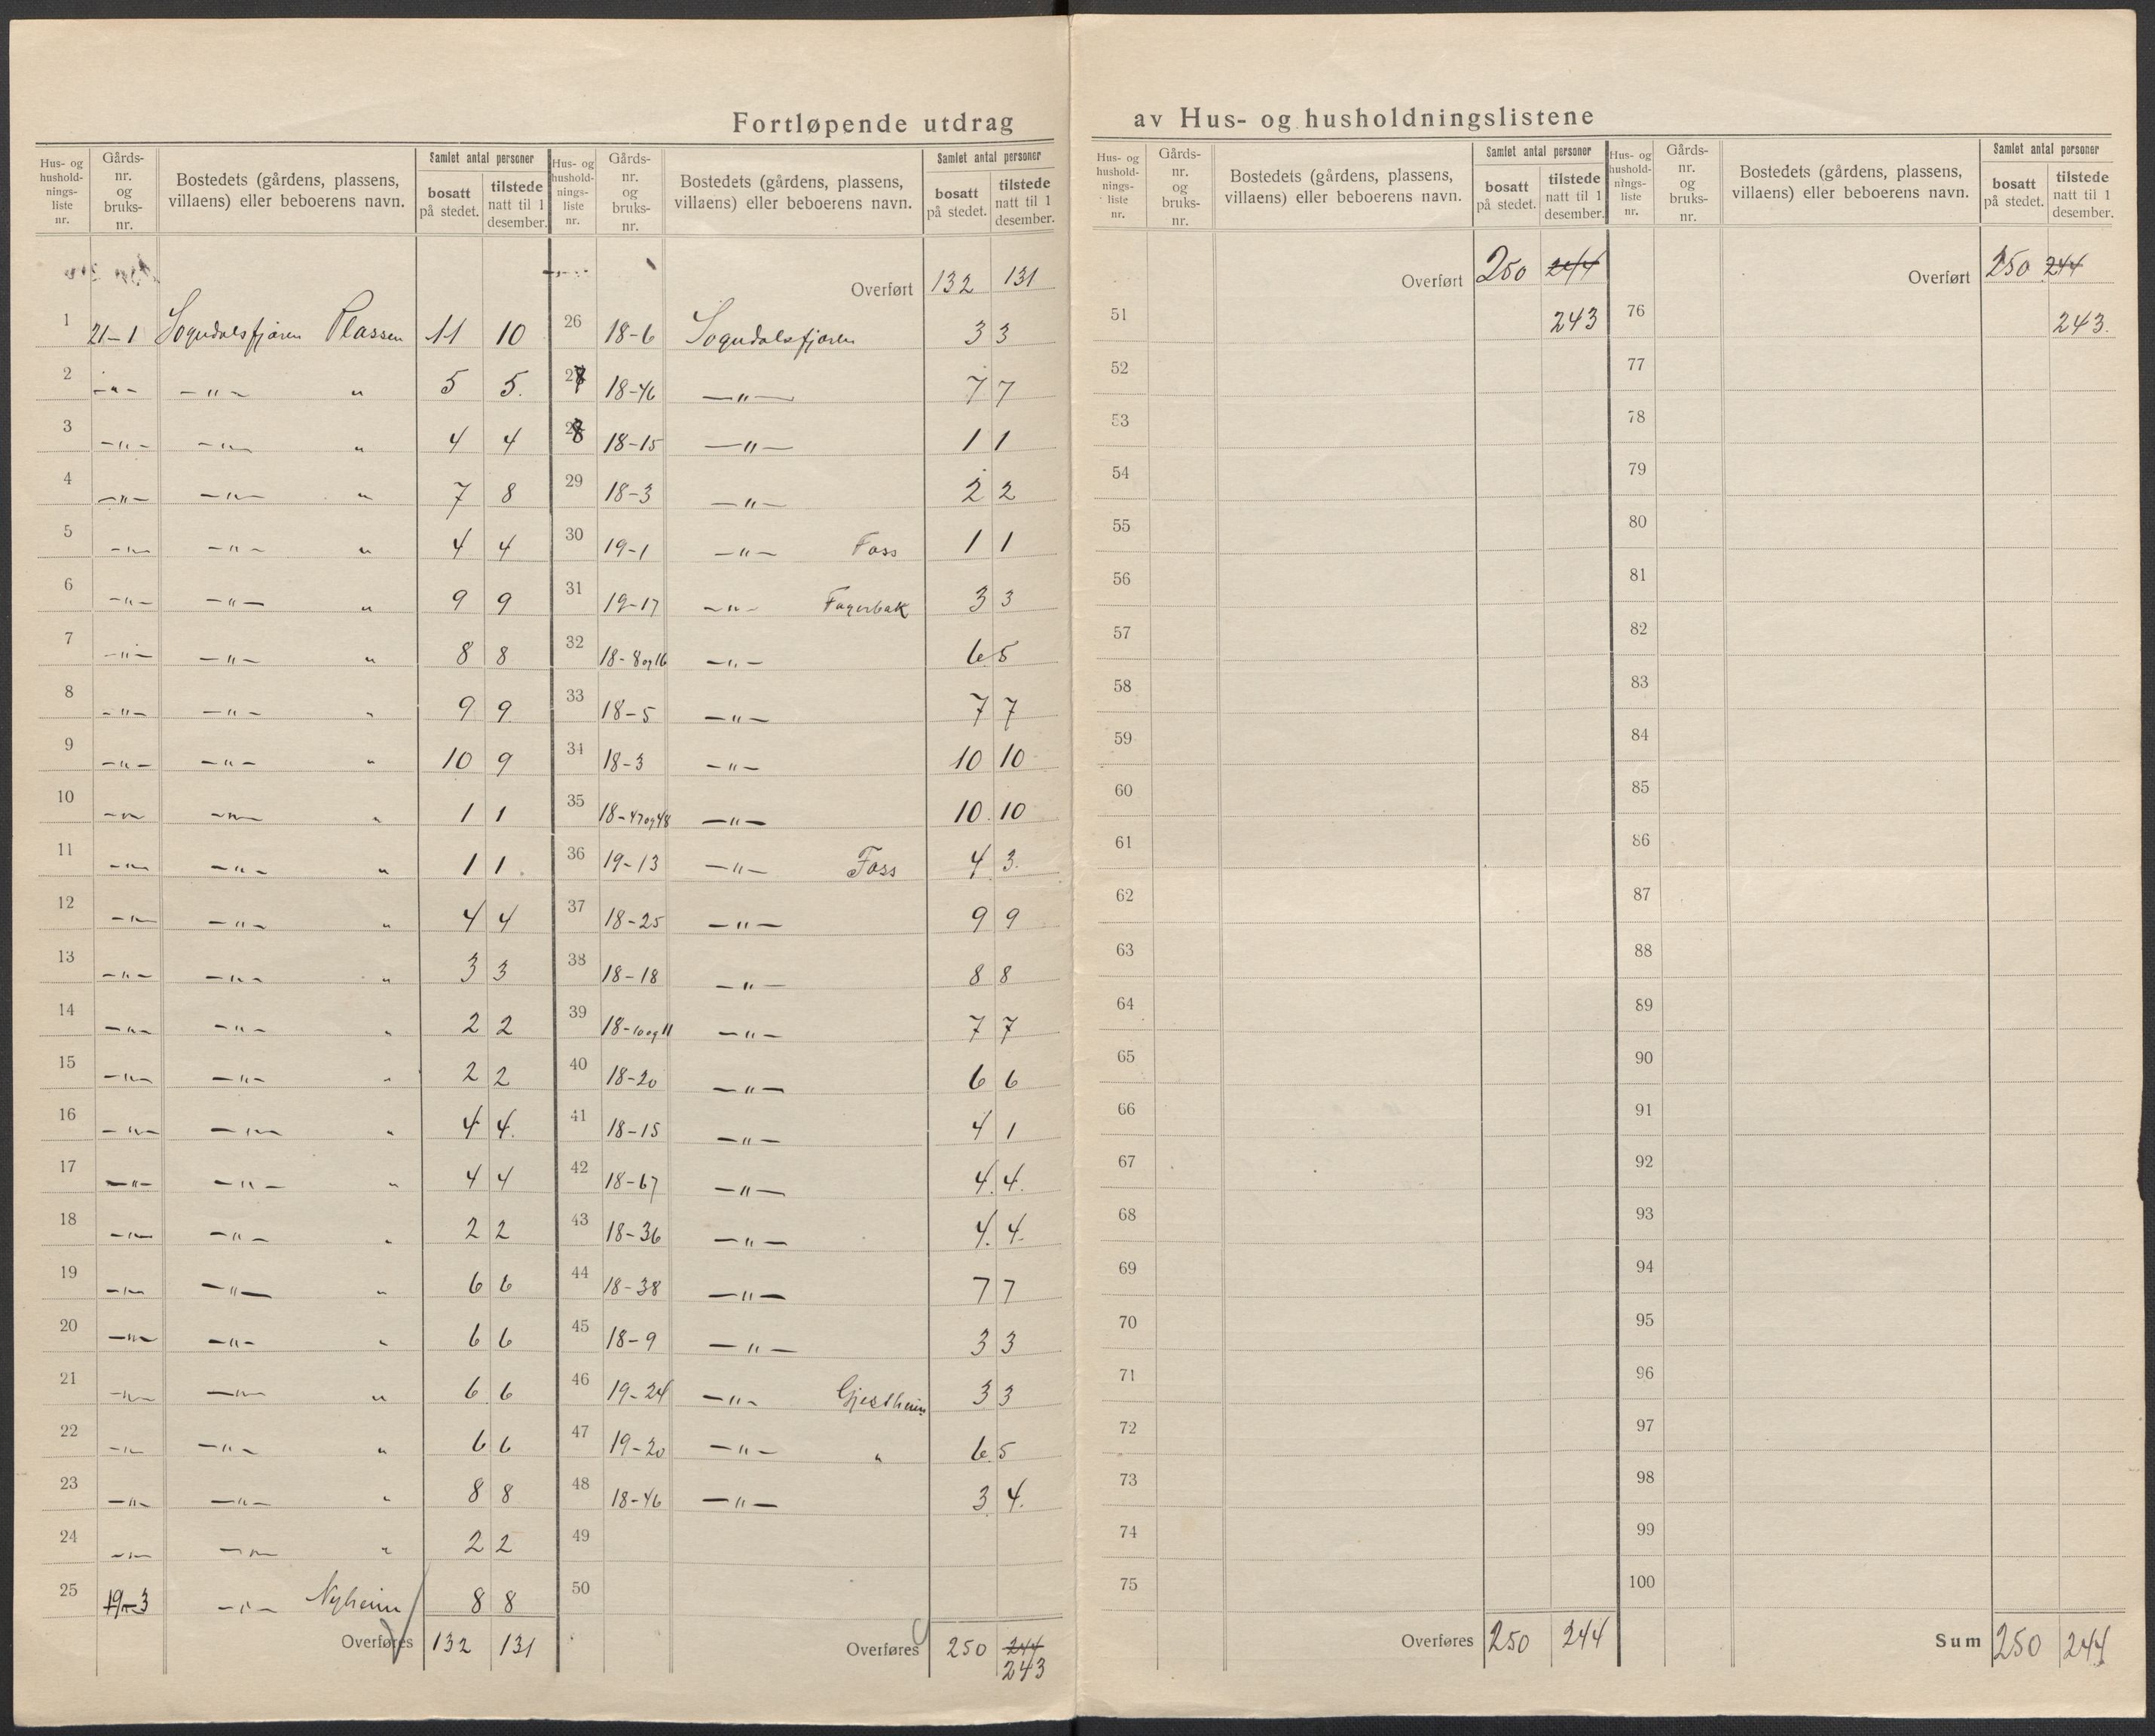 Fortløpende utdrag av Hus- og husholdningslistene
Hus- og hushold- nings- liste nr. Gårds- nr. og bruks- nr. Bostedets (gårdens, plassens, villaens) eller beboerens navn. Samlet antal personer bosatt på stedet. tilstede natt til 1 desember.
1 21-1 Sogndalsfjøren Plassen 11 10
2 -"- -"- " 5 5.
3 -"- -"- " 4 4
4 -"- -"- " 7 8
5 -"- -"- " 4 4
6 -"- -"- " 9 9
7 -"- -"- " 8 8
8 -"- -"- " 9 9
9 -"- -"- " 10 9
10 -"- -"- " 1 1
11 -"- -"- " 1 1.
12 -"- -"- " 4 4
13 -"- -"- " 3 3
14 -"- -"- " 2 2
15 -"- -"- " 2 2
16 -"- -"- " 4 4.
17 -"- -"- " 4 4
18 -"- -"- " 2 2
19 -"- -"- " 6 6
20 -"- -"- " 6 6
21 -"- -"- " 6 6
22 -"- -"- " 6 6
23 -"- -"- " 8 8
24 -"- -"- " 2 2
25 19-3 -"- Nyheim 8 8
Overføres 132 131
Hus- og hushold- nings- liste nr. Gårds- nr. og bruks- nr. Bostedets (gårdens, plassens, villaens) eller beboerens navn. Samlet antal personer bosatt på stedet. tilstede natt til 1 desember.
Overført 132 131
26 18-6 Sogndalsfjøren 3 3
27 18-46 -"- 7 7
28 18-15 -"- 1 1
29 18-3 -"- 2 2
30 19-1 -"- Foss 1 1
31 19-17 -"- Fagerbak 3 3
32 18-8 og 16 -"- 6 5
33 18-5 -"- 7 7
34 18-3 -"- 10 10
35 18-47 og 48 -"- 10. 10
36 19-13 -"- Foss 4 3.
37 18-25 -"- 9 9
38 18-18 -"- 8 8
39 18-10 og 11 -"- 7 7
40 18-20 -"- 6 6
41 18-15 -"- 4 1
42 18-67 -"- 4. 4.
43 18-36 -"- 4. 4.
44 18-38 -"- 7 7
45 18-9 -"- 3 3
46 19-24 -"- Gjestheim 3 3
47 19-20 -"- " 6 5
48 18-46 -"- 3 4.
49
50
Overføres 250 244
243
Hus- og hushold- nings- liste nr. Gårds- nr. og bruks- nr. Bostedets (gårdens, plassens, villaens) eller beboerens navn. Samlet antal personer bosatt på stedet. tilstede natt til 1 desember.
Overført 250 244
51 243
52
53
54
55
56
57
58
59
60
61
62
63
64
65
66
67
68
69
70
71
72
73
74
75
Overføres 250 244
Hus- og hushold- nings- liste nr. Gårds- nr. og bruks- nr. Bostedets (gårdens, plassens, villaens) eller beboerens navn. Samlet antal personer bosatt på stedet. tilstede natt til 1 desember.
Overført 250 244
76 243.
77
78
79
80
81
82
83
84
85
86
87
88
89
90
91
92
93
94
95
96
97
98
99
100
Sum 250 244